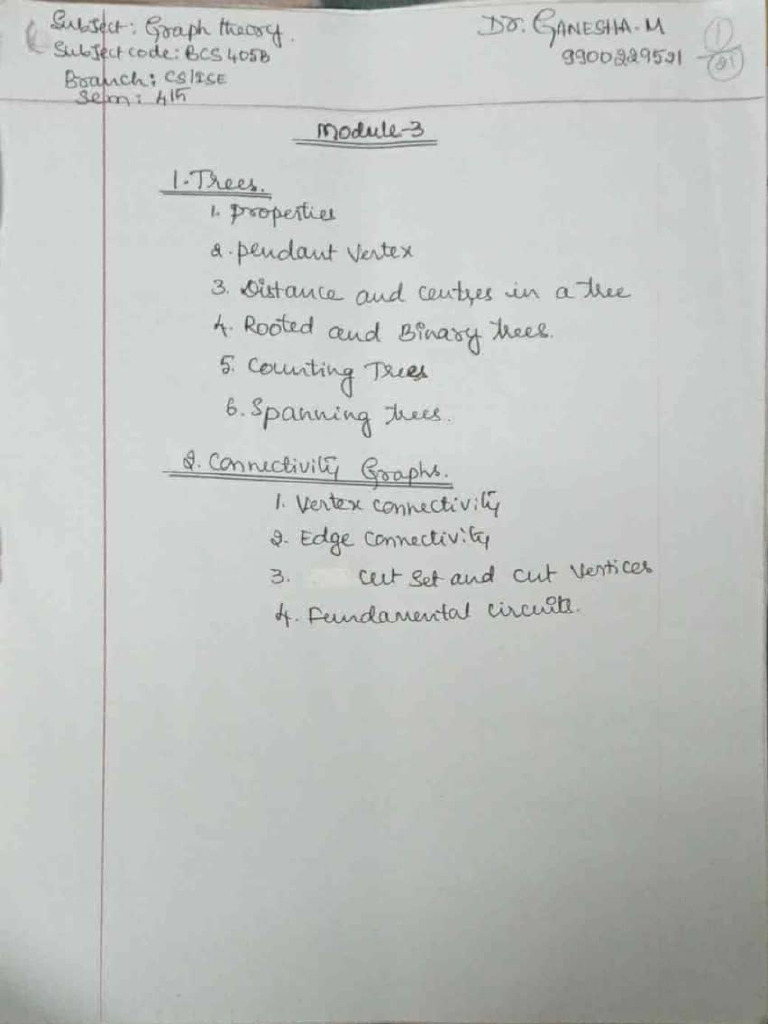 Subject: Graph theory.
Subject code: BCS405B
Branch: CS/ISE
Sem: 4/5
Dr. GANESHA.M
9900229521
1
21
Module-3
1. Trees.
1. properties
2. pendant vertex
3. Distance and centres in a tree
4. Rooted and Binary trees.
5. Counting Trees
6. Spanning trees.
2. Connectivity Graphs.
1. Vertex connectivity
2. Edge connectivity
3. cut set and cut vertices
4. Fundamental circuits.